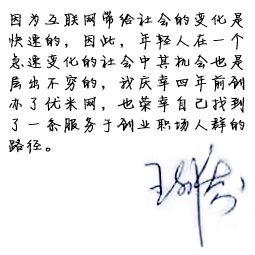 因为互联网带给社会的变化是
快速的，因此，年轻人在一个
急速变化的社会中其机会也是
层出不穷的，我庆幸四年前创
办了优米网，也荣幸自己找到
了一条服务于创业职场人群的
路径。